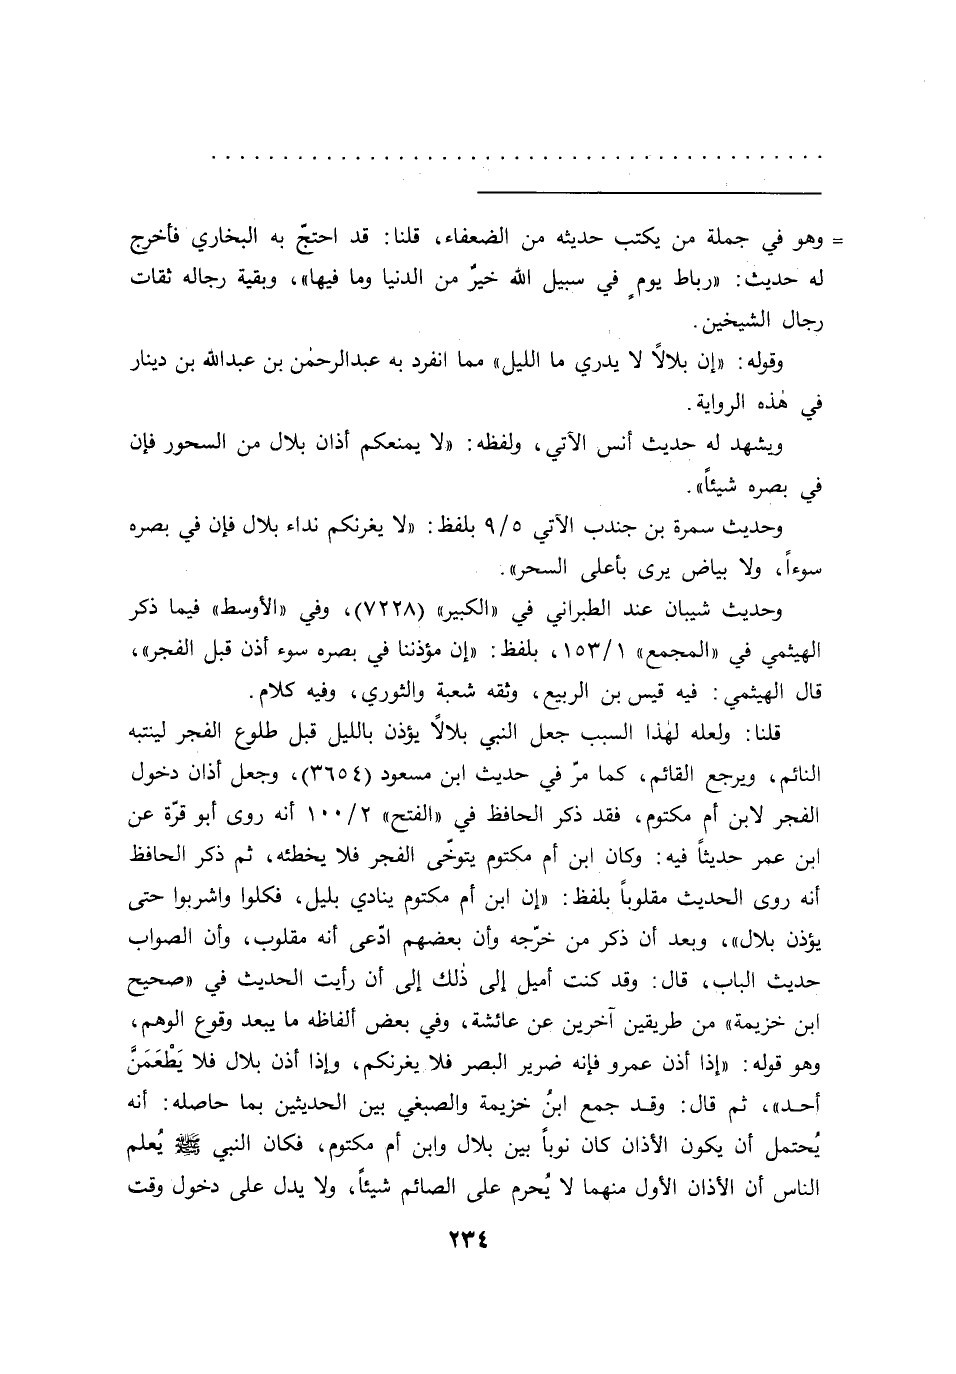 . . . . . . . . . . . . . . . . . . . . . . . . . . . . . . . . . . . . . . . . . . .
= وهو في جملة من يكتب حديثه من الضعفاء، قلنا: قد احتجّ به البخاري فأخرج
له حديث: «رباط يومٍ في سبيل الله خيرٌ من الدنيا وما فيها»، وبقية رجاله ثقات
رجال الشيخين.
وقوله: «إن بلالًا لا يدري ما الليل» مما انفرد به عبدالرحمٰن بن عبدالله بن دينار
في هٰذه الرواية.
ويشهد له حديث أنس الآتي، ولفظه: «لا يمنعكم أذان بلال من السحور فإن
في بصره شيئاً».
وحديث سمرة بن جندب الآتي ٩/٥ بلفظ: «لا يغرنكم نداء بلال فإن في بصره
سوءاً، ولا بياض يرى بأعلى السحر».
وحديث شيبان عند الطبراني في «الكبير» (٧٢٢٨)، وفي «الأوسط» فيما ذكر
الهيثمي في «المجمع» ١٥٣/١، بلفظ: «إن مؤذننا في بصره سوء أذن قبل الفجر»،
قال الهيثمي: فيه قيس بن الربيع، وثقه شعبة والثوري، وفيه كلام.
قلنا: ولعله لهٰذا السبب جعل النبي بلالًا يؤذن بالليل قبل طلوع الفجر لينتبه
النائم، ويرجع القائم، كما مرّ في حديث ابن مسعود (٣٦٥٤)، وجعل أذان دخول
الفجر لابن أم مكتوم، فقد ذكر الحافظ في «الفتح» ١٠٠/٢ أنه روى أبو قرّة عن
ابن عمر حديثاً فيه: وكان ابن أم مكتوم يتوخّى الفجر فلا يخطئه، ثم ذكر الحافظ
أنه روى الحديث مقلوباً بلفظ: «إن ابن أم مكتوم ينادي بليل، فكلوا واشربوا حتى
يؤذن بلال»، وبعد أن ذكر من خرّجه وأن بعضهم ادّعى أنه مقلوب، وأن الصواب
حديث الباب، قال: وقد كنت أميل إلى ذٰلك إلى أن رأيت الحديث في «صحيح
ابن خزيمة» من طريقين آخرين عن عائشة، وفي بعض ألفاظه ما يبعد وقوع الوهم،
وهو قوله: «إذا أذن عمرو فإنه ضرير البصر فلا يغرنكم، وإذا أذن بلال فلا يَطْعَمَنَّ
أحد»، ثم قال: وقد جمع ابنُ خزيمة والصبغي بين الحديثين بما حاصله: أنه
يُحتمل أن يكون الأذان كان نوباً بين بلال وابن أم مكتوم، فكان النبي ﷺ يُعلم
الناس أن الأذان الأول منهما لا يُحرم على الصائم شيئاً، ولا يدل على دخول وقت
٢٣٤